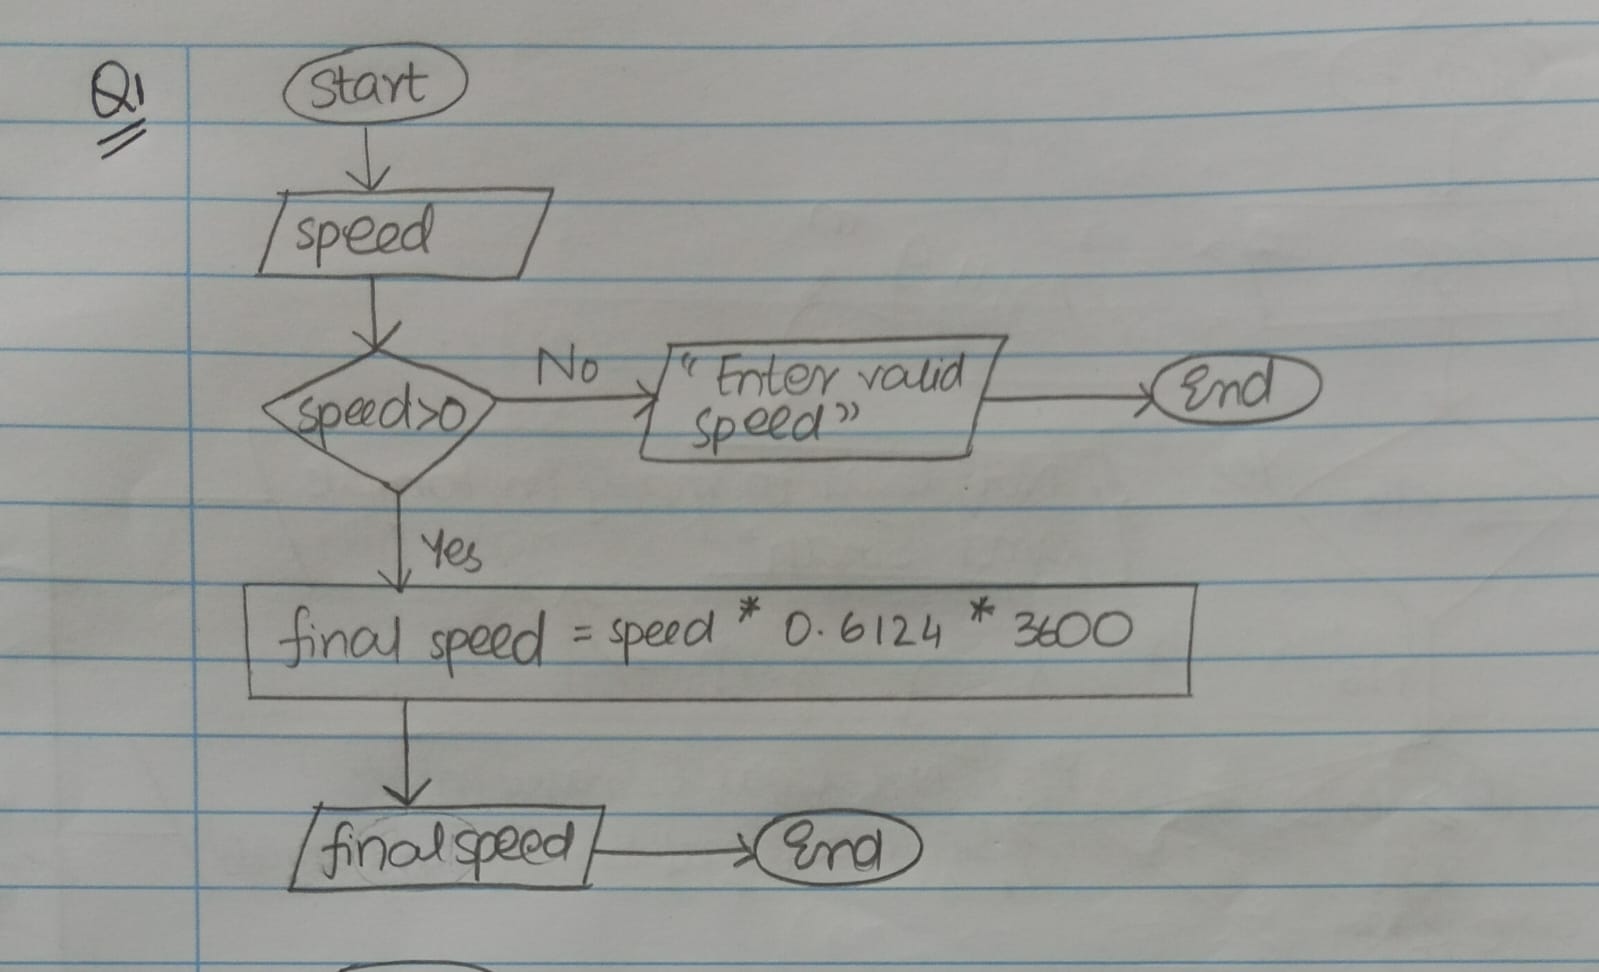 Q1
Start
speed
speed>0
No
"Enter valid
speed"
End
Yes
final speed = speed * 0.6124 * 3600
final speed
End